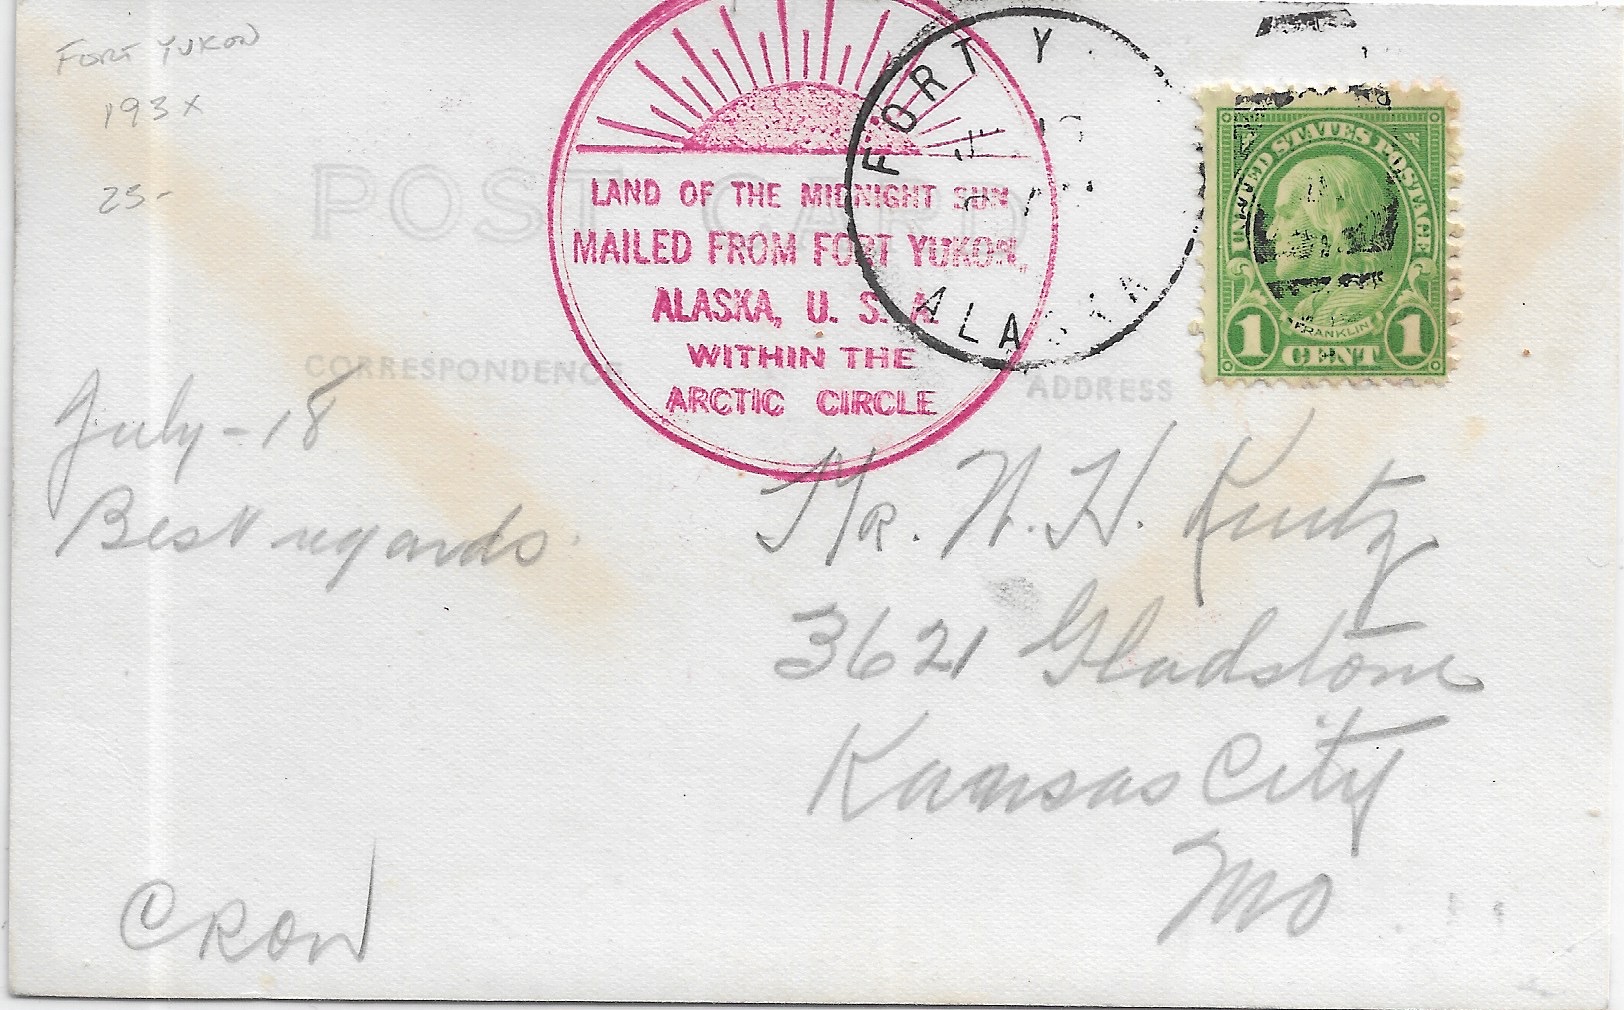 FORT YUKON
193X
25-
POST CARD
LAND OF THE MIDNIGHT SUN
MAILED FROM FORT YUKON,
ALASKA, U. S. A.
WITHIN THE
ARCTIC CIRCLE
FORT Y
ALASKA
UNITED STATES POSTAGE
FRANKLIN
1 CENT 1
CORRESPONDENCE
ADDRESS
July-18
Best regards.
CROW
Mr. N. H. Kurtz
3621 Gladstone
Kansas City
Mo